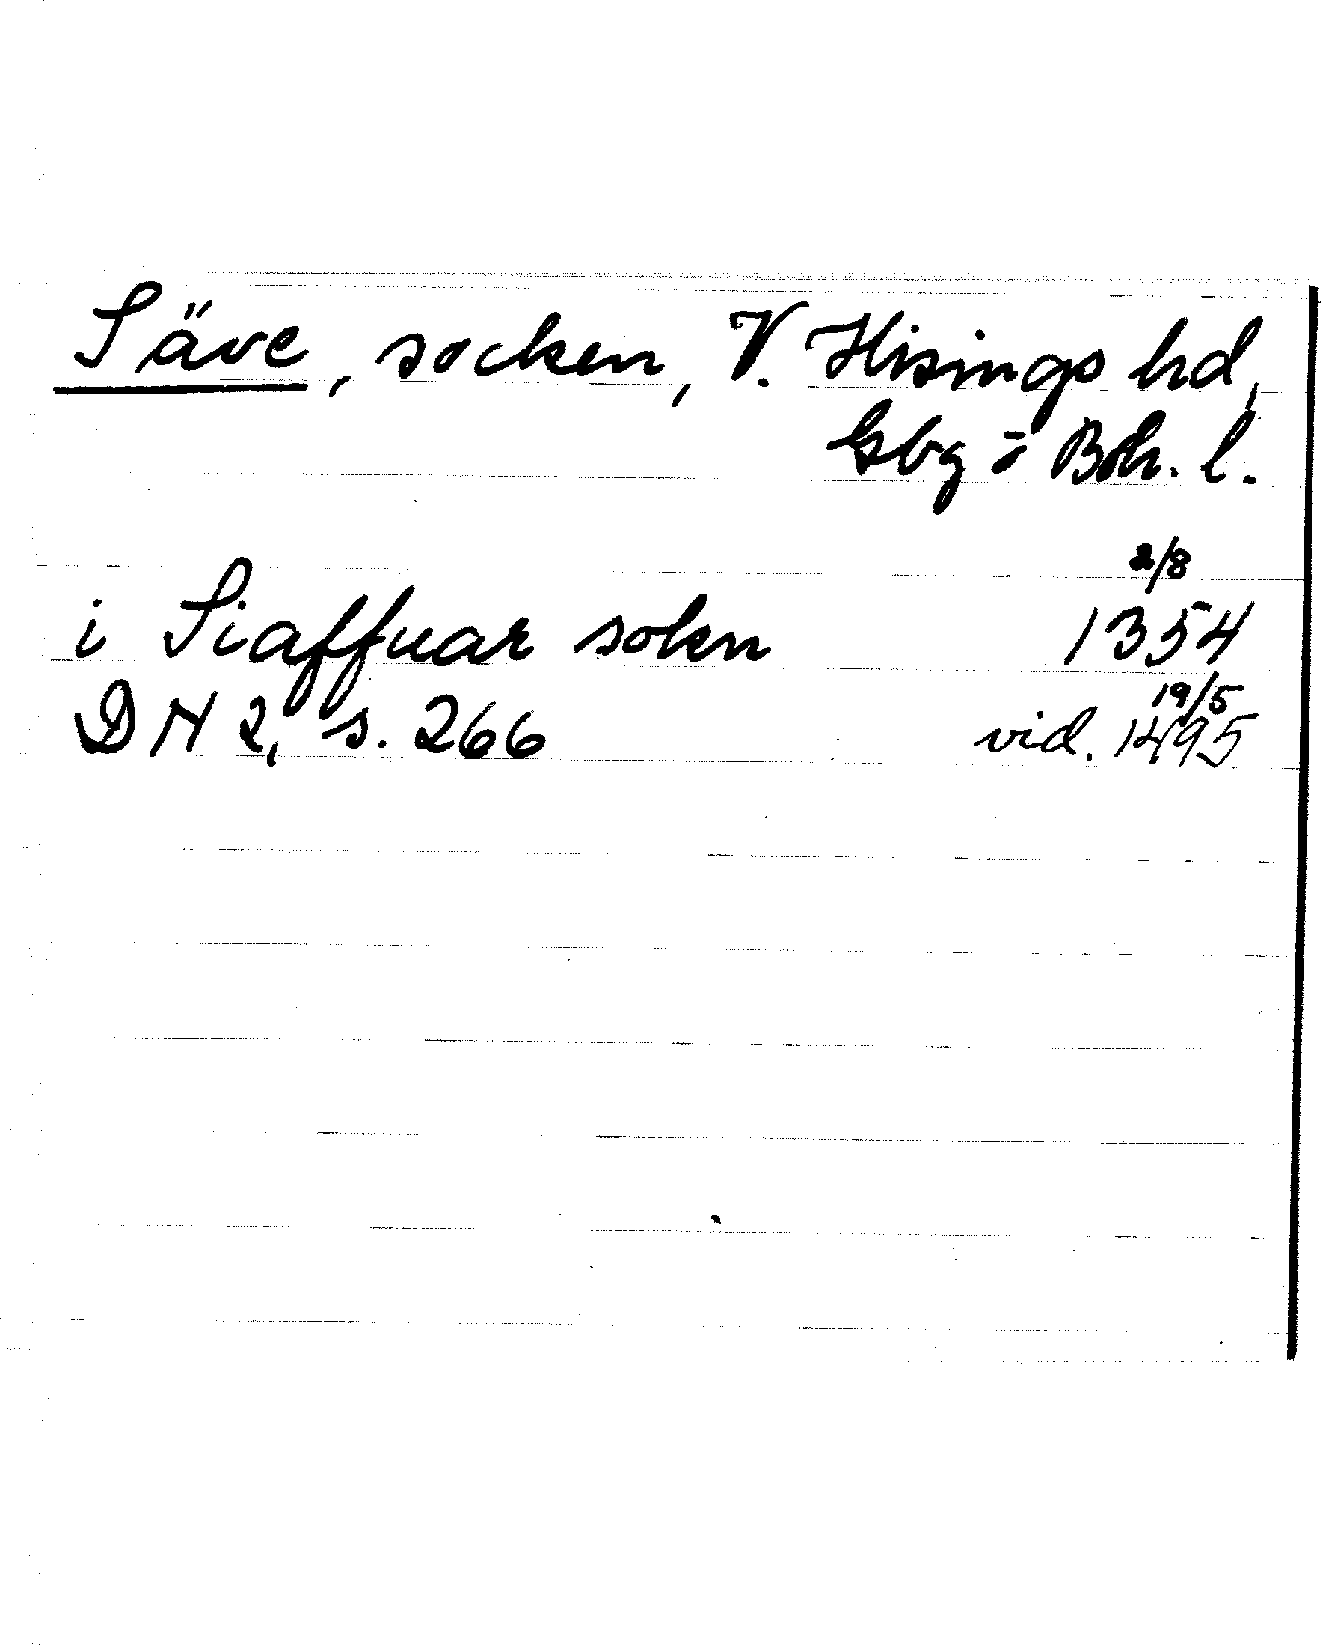 Säve, socken, V. Hisings hd,
Gbg o Boh. l.
2/8
i Siaffuar sokn 1354
19/5
DN 2, s. 266 vid. 1495